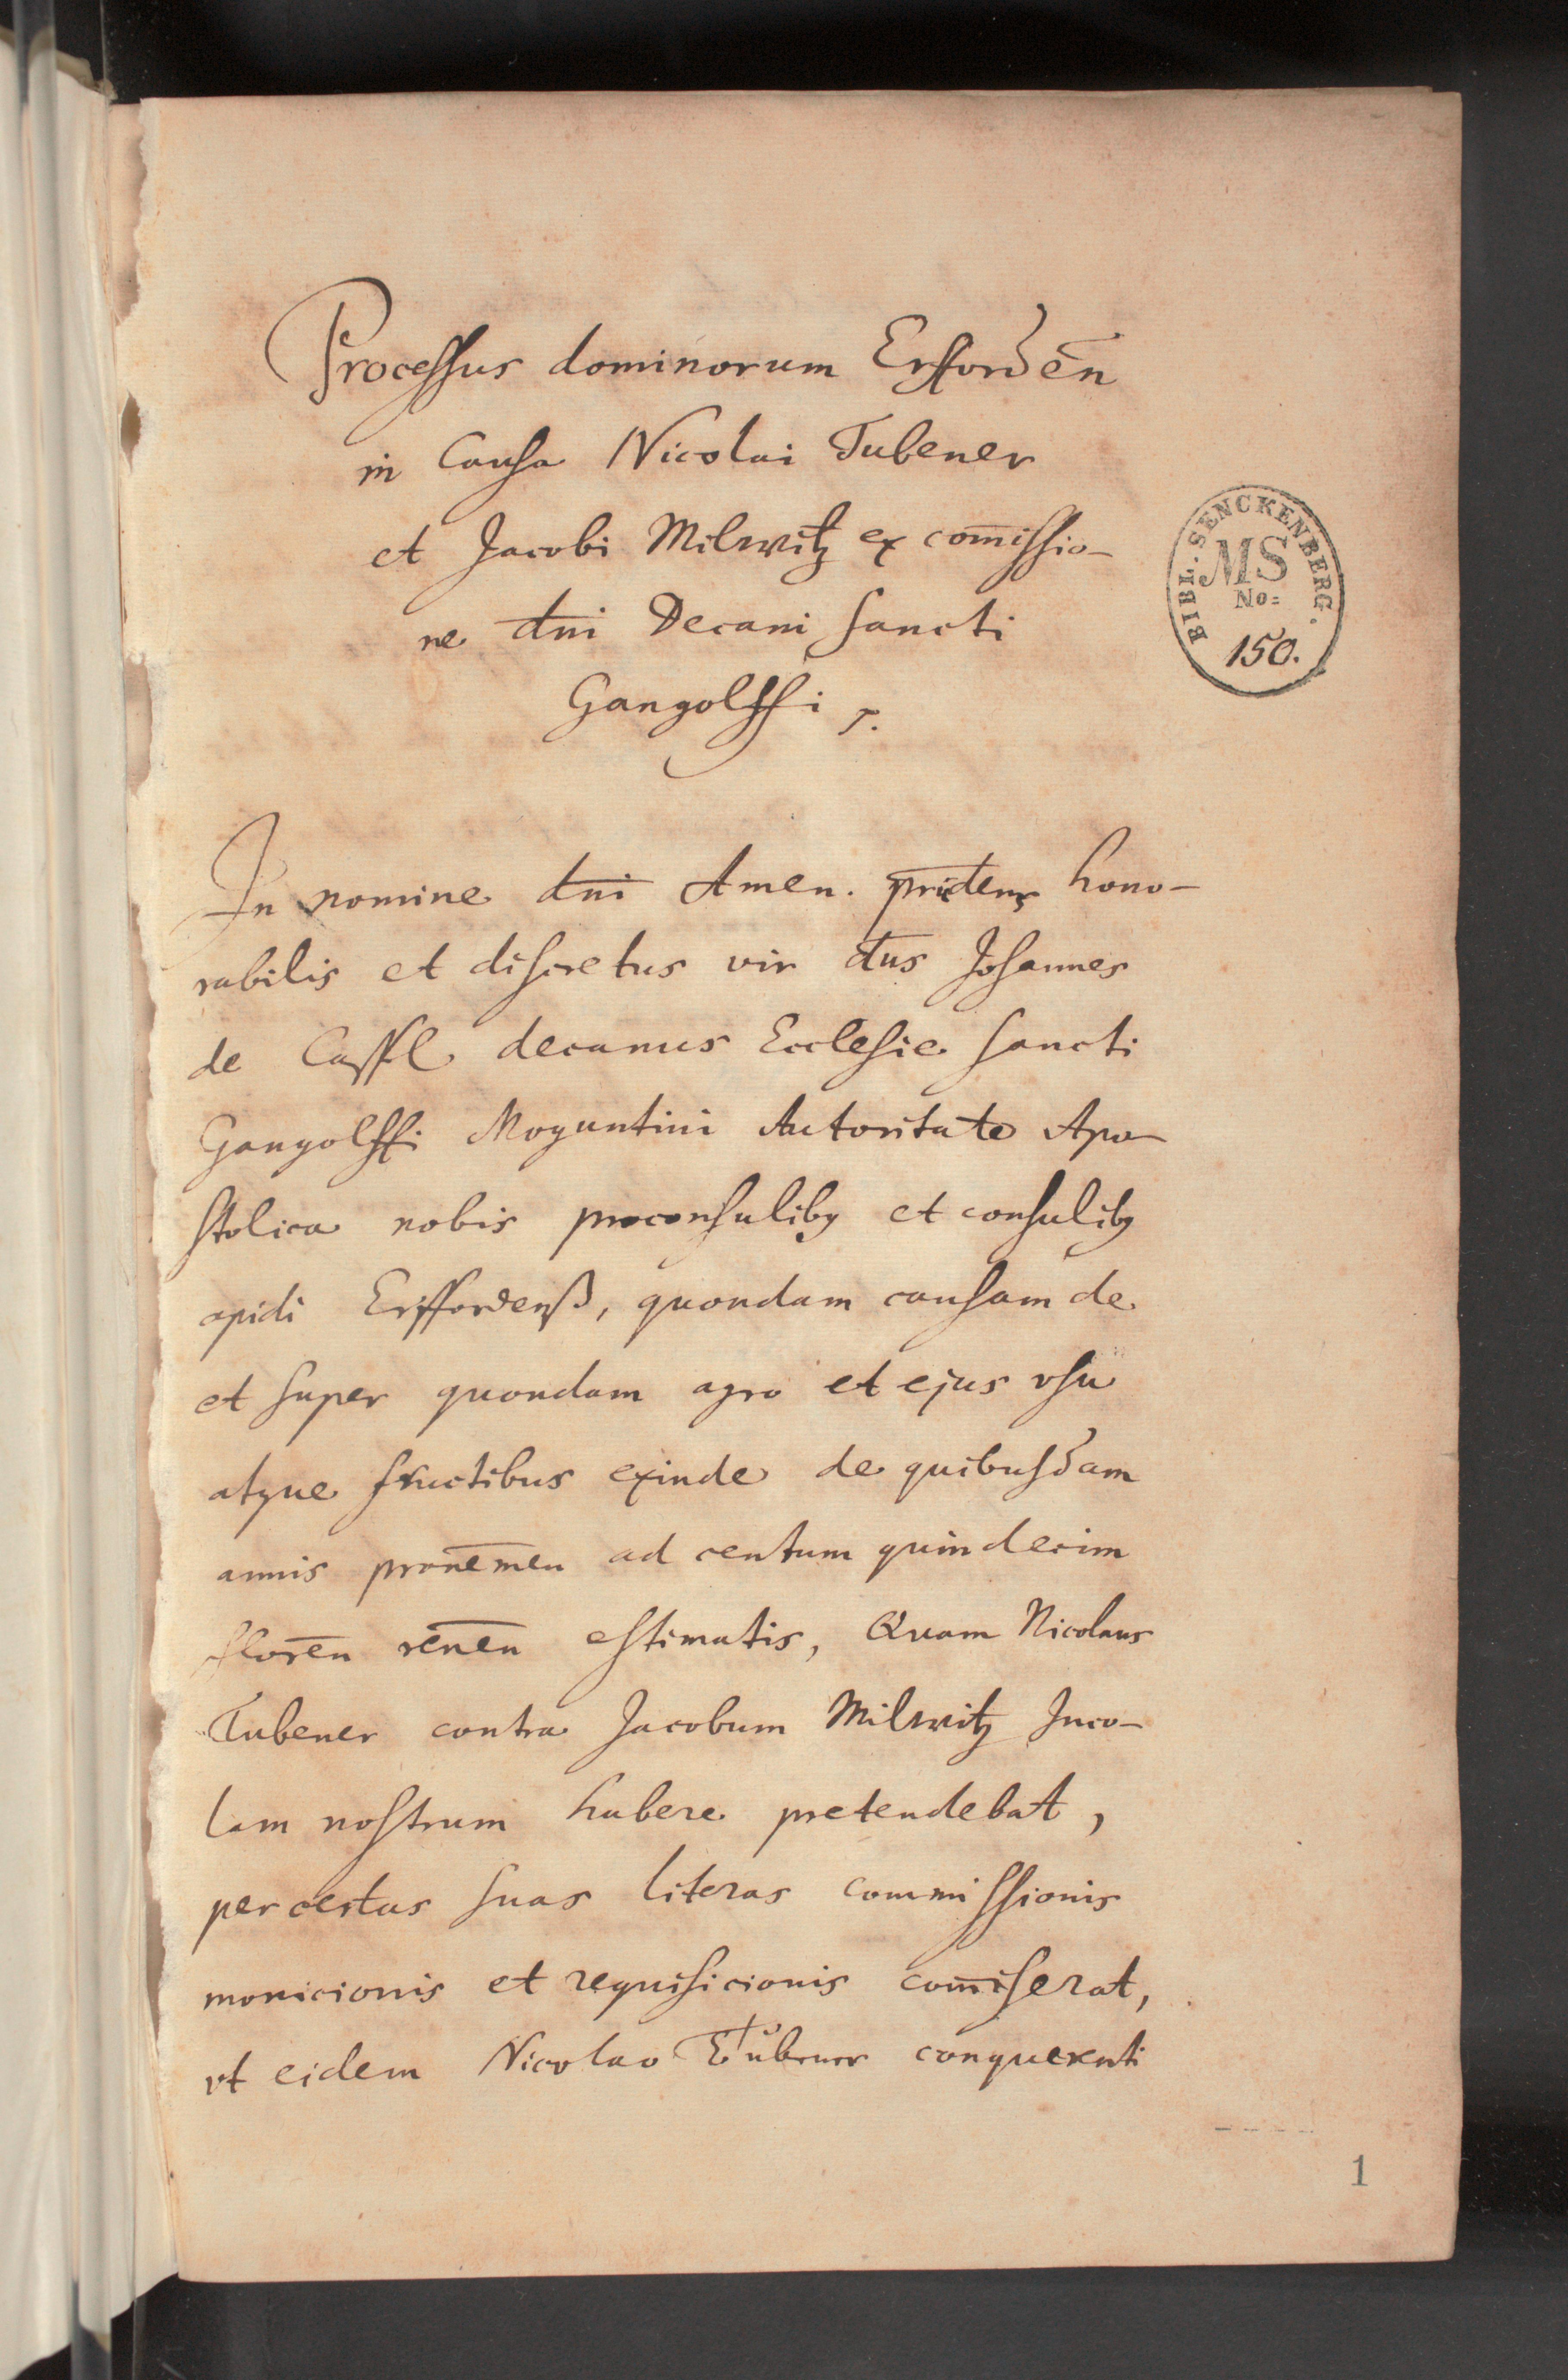 Processus dominorum Erfforden̄
in Causa Nicolai Tubener
et Jacobi Milwitz ex com̄issio-
ne dn̄i Decani sancti
Gangolffi
BIBL. SENCKENBERG.
MS
No:
150.
In nomine dn̄i Amen. hono-
rabilis et discretus vir dn̄s Johannes
de Cassel decanus Ecclesie sancti
Gangolffi Moguntini Autoritate Apo-
stolica nobis proconsulibꝫ et consulibꝫ
opidi Erffordenß, quondam causam de
et super quondam agro et ejus vsu
atque fructibus exinde de quibusdam
annis ad centum quindecim
floren̄ renen̄ estimatis, Quam Nicolaus
Tubener contra Jacobum Milwitz Inco-
lam nostrum habere pretendebat,
per certas suas literas commissionis
monicionis et requisicionis com̄iserat,
vt eidem Nicolao Tubener conquerenti
1